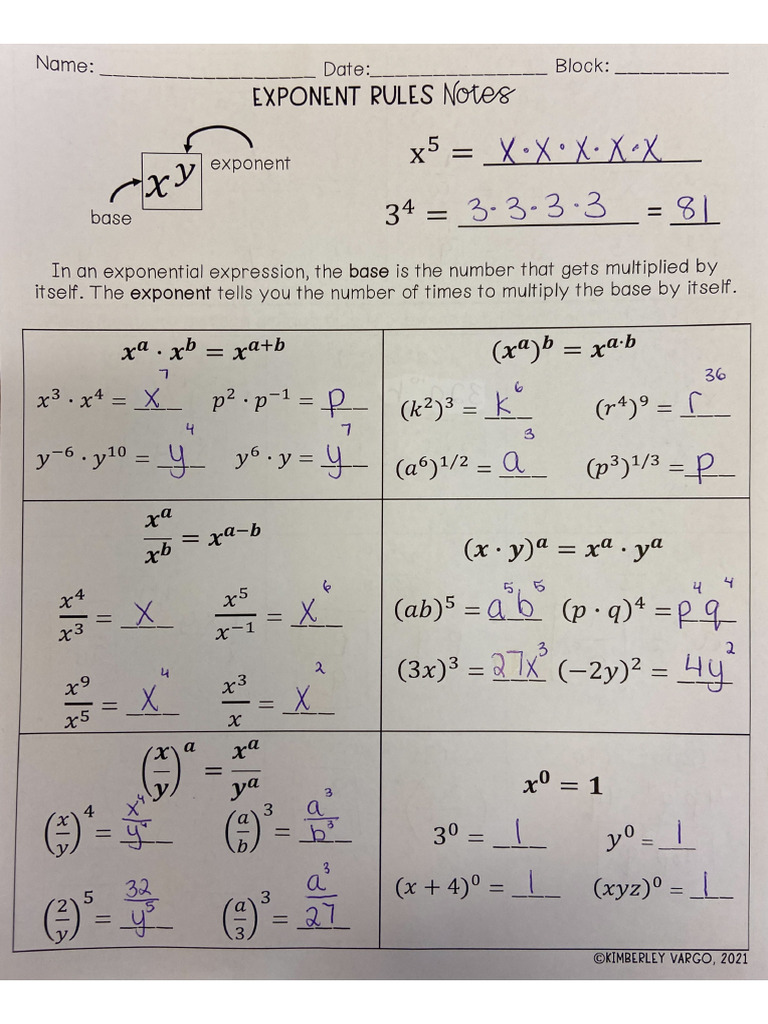 Name: _________________ Date:______________ Block: _________
EXPONENT RULES Notes
x y
exponent
base
x⁵ = x · x · x · x · x
3⁴ = 3 · 3 · 3 · 3 = 81
In an exponential expression, the base is the number that gets multiplied by
itself. The exponent tells you the number of times to multiply the base by itself.
xᵃ · xᵇ = xᵃ⁺ᵇ
x³ · x⁴ = x⁷ p² · p⁻¹ = p
y⁻⁶ · y¹⁰ = y⁴ y⁶ · y = y⁷
(xᵃ)ᵇ = xᵃ·ᵇ
(k²)³ = k⁶ (r⁴)⁹ = r³⁶
(a⁶)^1/2 = a³ (p³)^1/3 = p
xᵃ/xᵇ = xᵃ⁻ᵇ
x⁴/x³ = x x⁵/x⁻¹ = x⁶
x⁹/x⁵ = x⁴ x³/x = x²
(x · y)ᵃ = xᵃ · yᵃ
(ab)⁵ = a⁵b⁵ (p · q)⁴ = p⁴q⁴
(3x)³ = 27x³ (−2y)² = 4y²
(x/y)ᵃ = xᵃ/yᵃ
(x/y)⁴ = x⁴/y⁴ (a/b)³ = a³/b³
(2/y)⁵ = 32/y⁵ (a/3)³ = a³/27
x⁰ = 1
3⁰ = 1 y⁰ = 1
(x + 4)⁰ = 1 (xyz)⁰ = 1
©KIMBERLEY VARGO, 2021